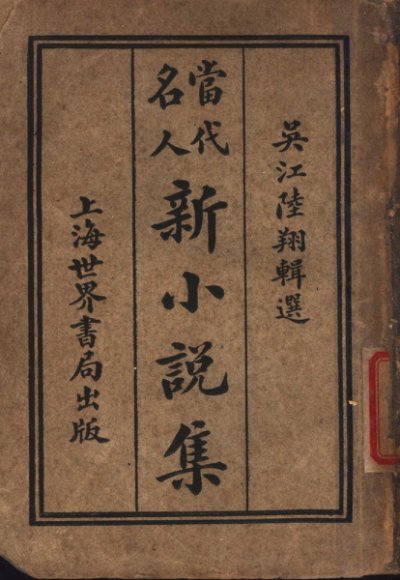 吳江陸翔輯選
當代名人
新小説集
上海世界書局出版